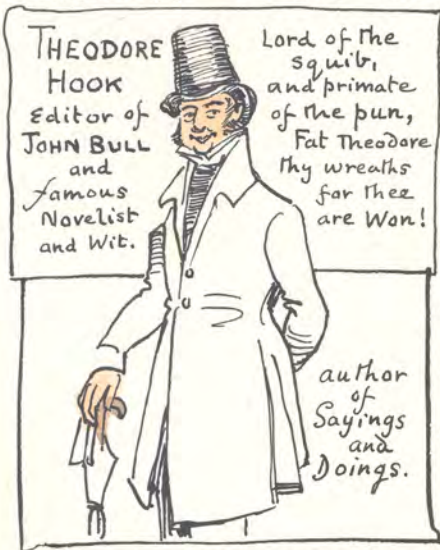 THEODORE
HOOK
Editor of
JOHN BULL
and
famous
Novelist
and Wit.
Lord of the
squib,
and primate
of the pun,
Fat Theodore
thy wreaths
for thee
are Won!
author
of
Sayings
and
Doings.